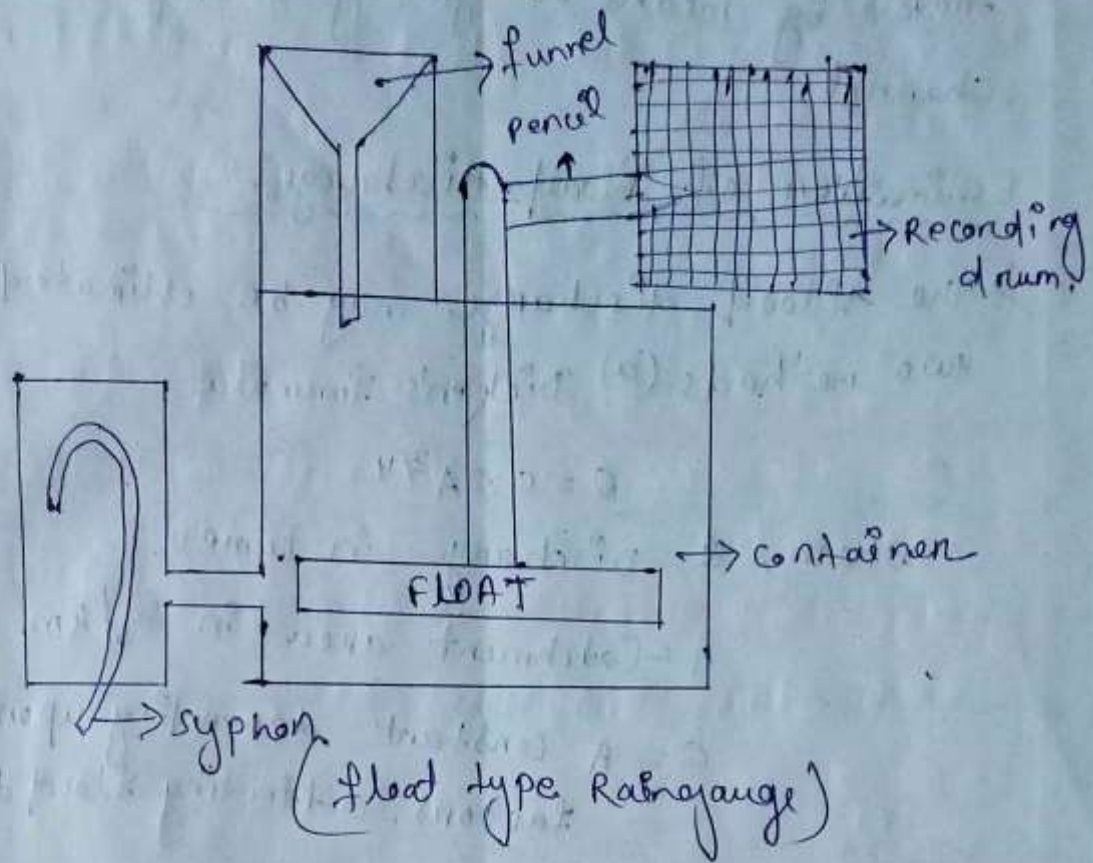 funnel
pencil
Recording
drum.
FLOAT
container
syphon
(float type Raingauge)